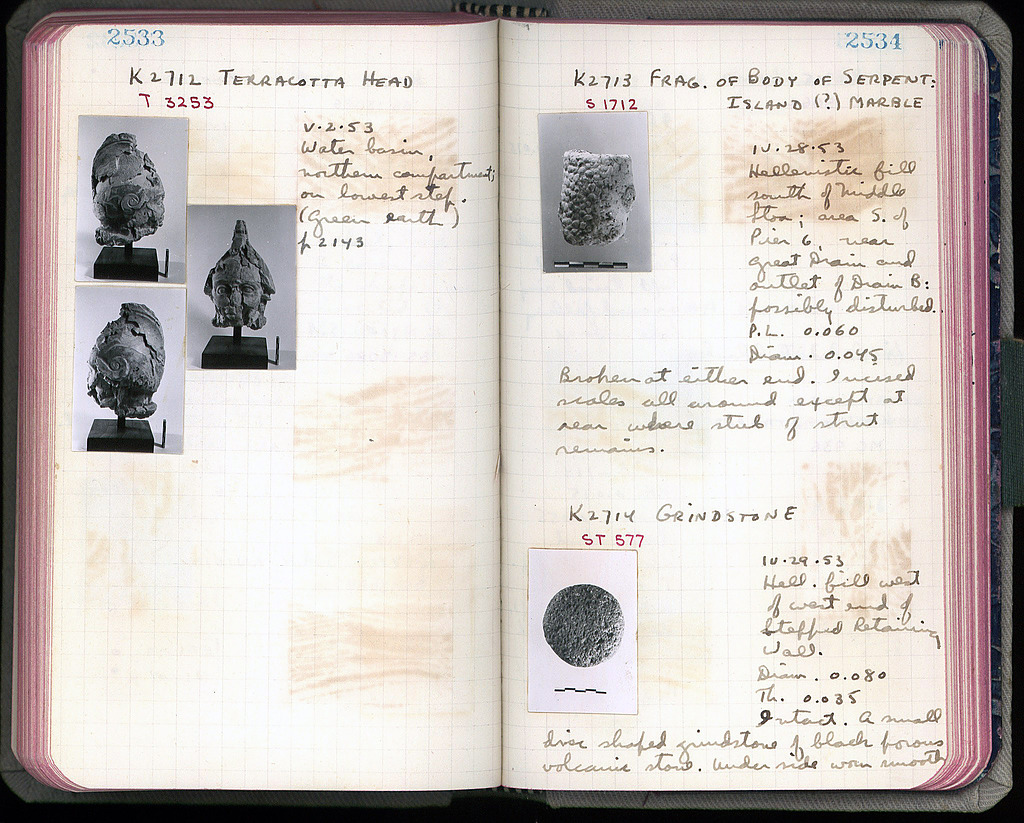 2533
K2712 TERRACOTTA HEAD
T 3253
V·2·53
Water basin,
northern compartment;
on lowest step.
(Green earth)
p 2143
2534
K2713 FRAG. OF BODY OF SERPENT:
S 1712
ISLAND (?) MARBLE
IV·28·53
Hellenistic fill
south of Middle
Stoa; area S. of
Pier 6, near
Great Drain and
outlet of Drain B:
possibly disturbed.
P.L. 0.060
Diam. 0.045
Broken at either end. Incised
scales all around except at
rear where stub of strut
remains.
K2714 GRINDSTONE
ST 577
IV·29·53
Hell. fill west
of west end of
Stepped Retaining
Wall.
Diam. 0.080
Th. 0.035
Intact. A small
disc shaped grindstone of black porous
volcanic stone. Under side worn smooth